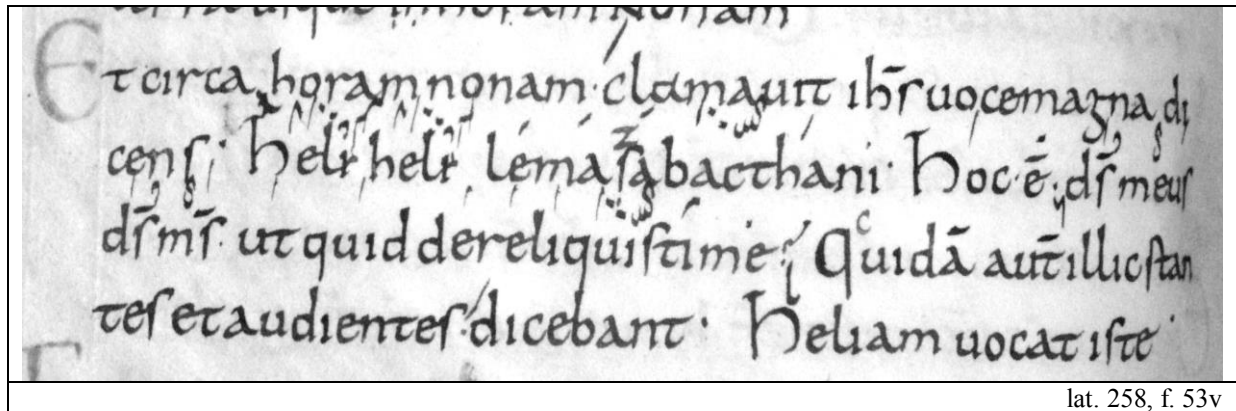 Et circa horam nonam · clamauit ih̄s uoce magna di
cens · Heli heli léma sabacthani · Hoc · ē · ds̄ meus
ds̄ ms̄ · ut quid dereliquisti me ? Quidā aut̄ illic stan
tes et audientes dicebant · Heliam uocat iste ·
lat. 258, f. 53v